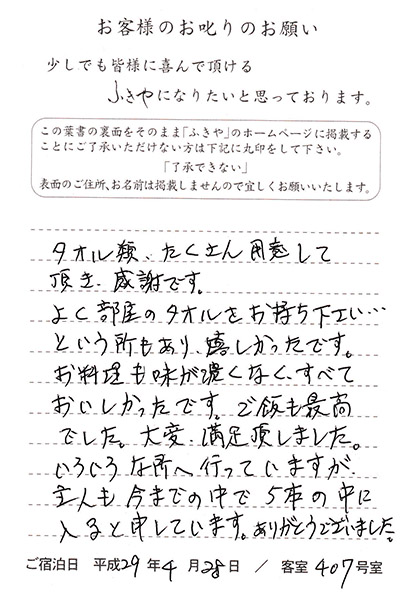 お客様のお叱りのお願い
少しでも皆様に喜んで頂ける
ふきやになりたいと思っております。
この葉書の裏面をそのまま「ふきや」のホームページに掲載する
ことにご了承いただけない方は下記に丸印をして下さい。
「了承できない」
表面のご住所、お名前は掲載しませんので宜しくお願いいたします。
タオル類、たくさん用意して
頂き、感謝です。
よく部屋のタオルをお持ち下さい…
という所もあり、嬉しかったです。
お料理も味が濃くなく、すべて
おいしかったです。ご飯も最高
でした。大変、満足頂しました。
いろいろな所へ行っていますが、
主人も今までの中で5本の中に
入ると申しています。ありがとうございました。
ご宿泊日 平成29年4月28日 / 客室407号室